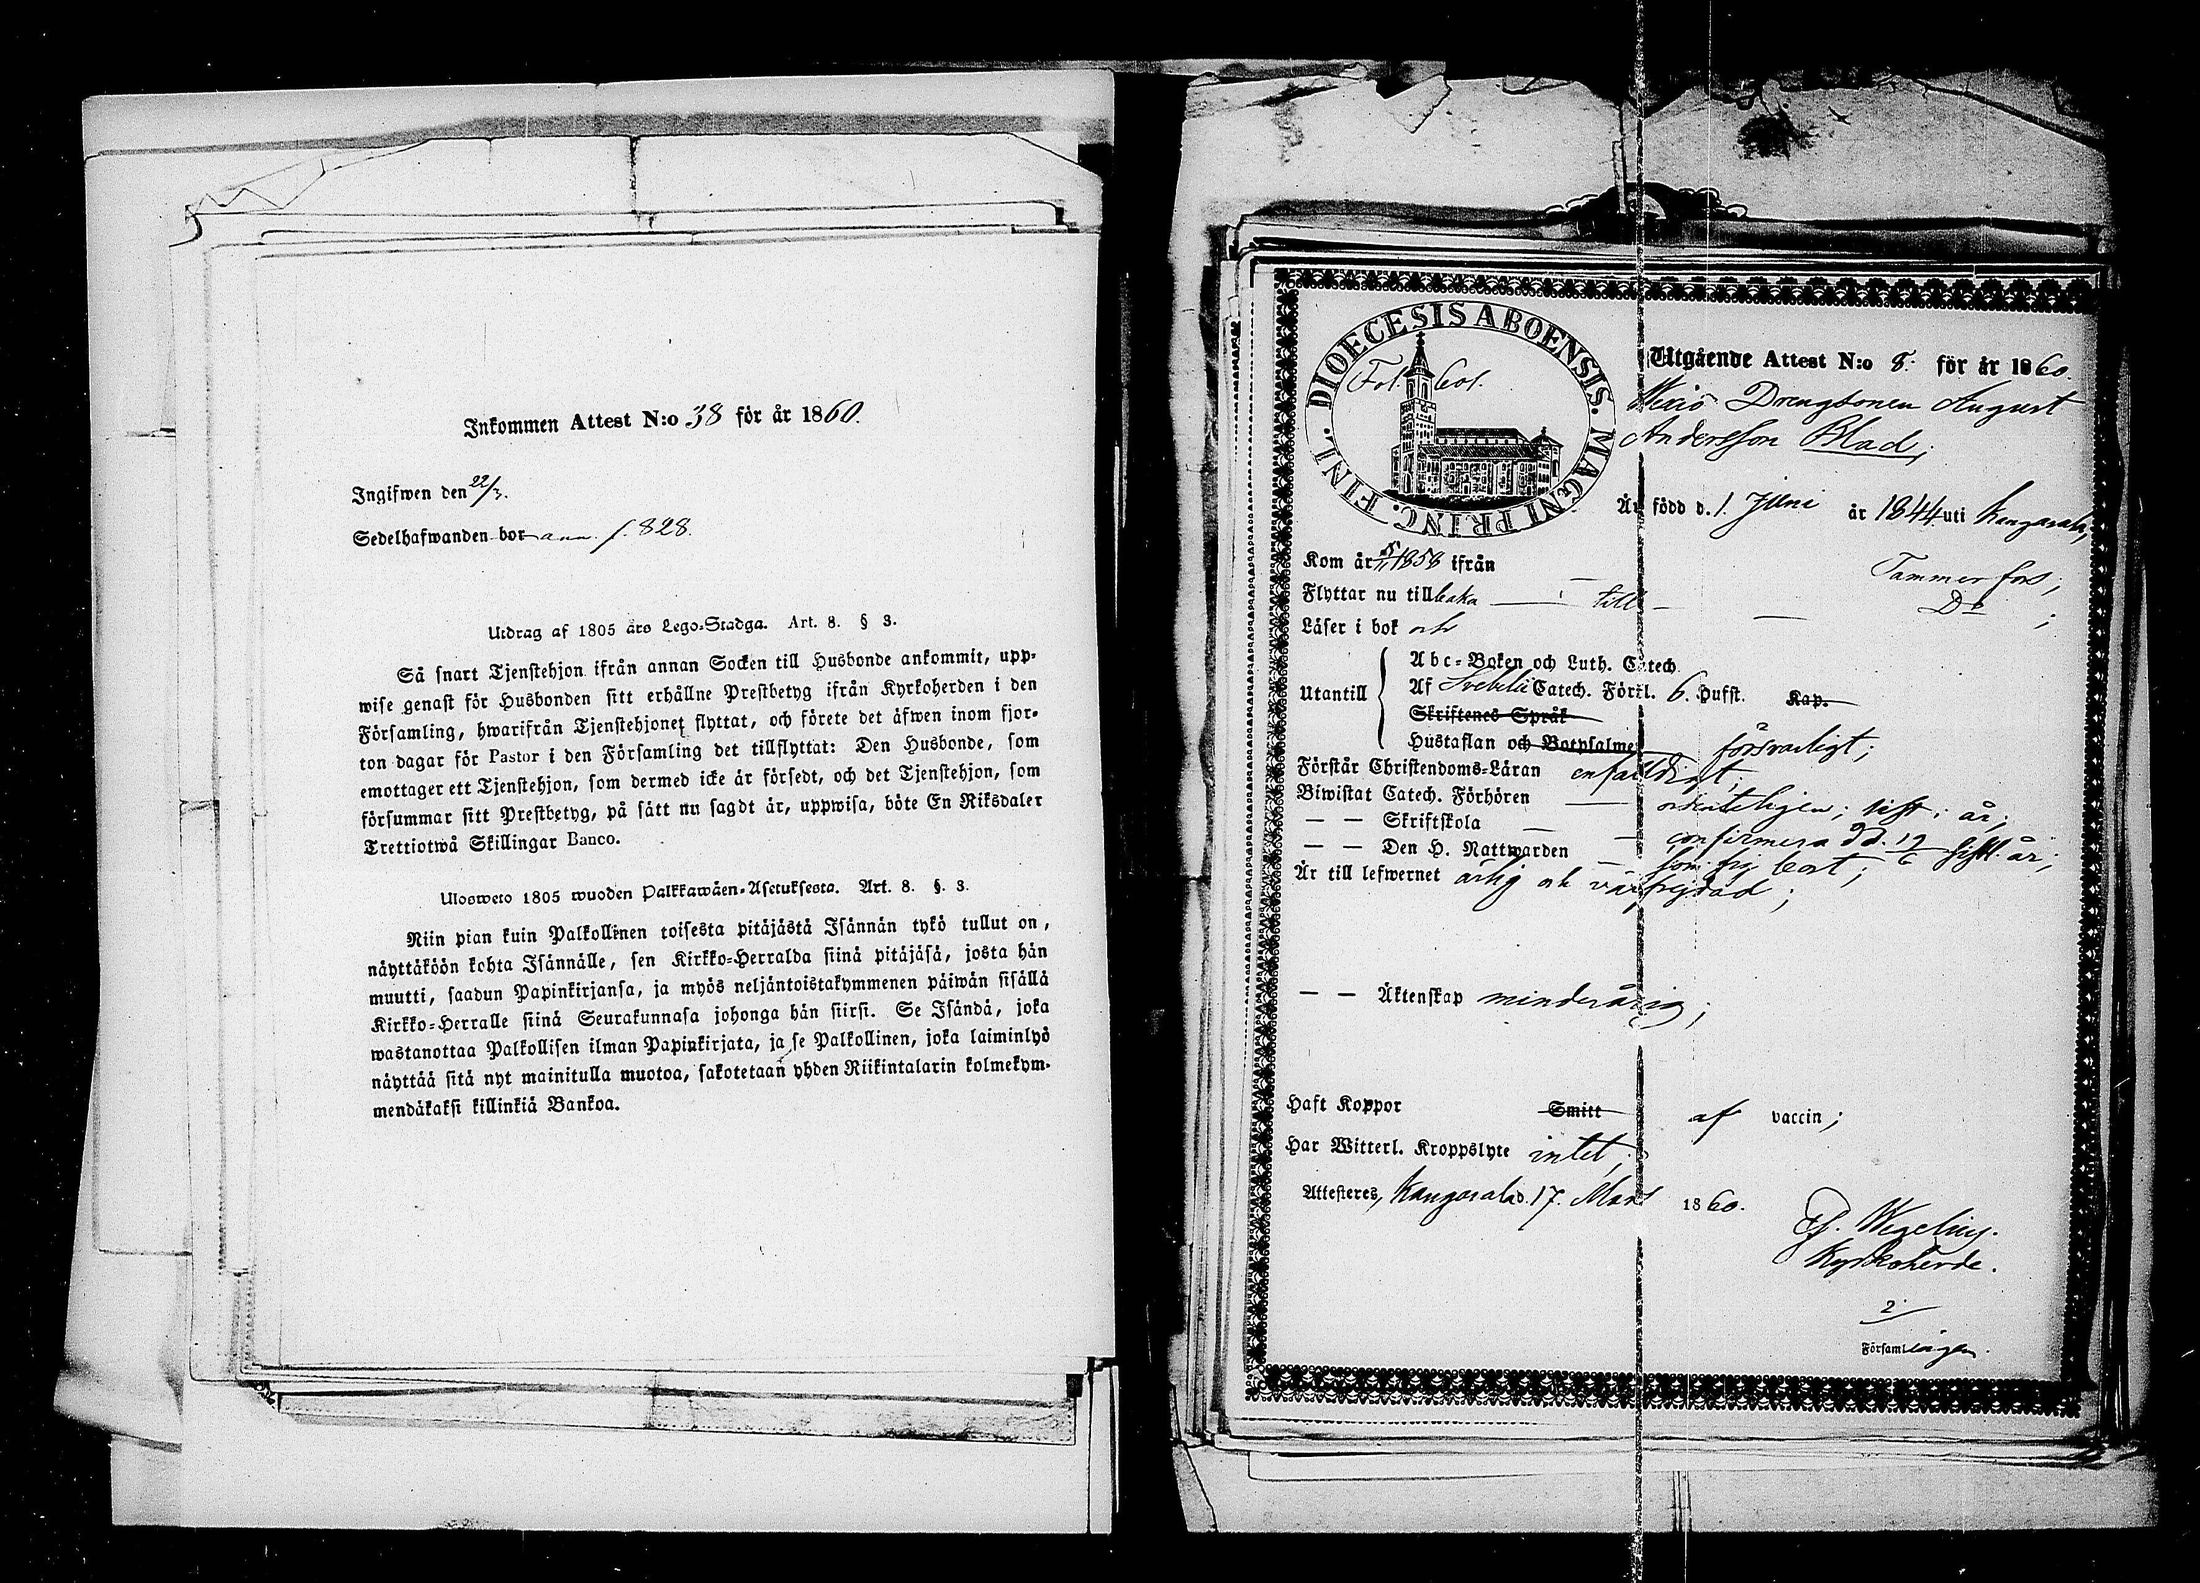 Inkommen Attest N:o 38 för år 1860.
Ingifwen den 22/3.
Sedelhafwanden bor ann. f. 828.
Utdrag af 1805 års Lego-Stadga. Art. 8. § 3.
Så snart Tjenstehjon ifrån annan Socken till Husbonde ankommit, upp-
wise genast för Husbonden sitt erhållne Prestbetyg ifrån Kyrkoherden i den
Församling, hwarifrån Tjenstehjonet flyttat, och förete det äfwen inom fjor-
ton dagar för Pastor i den Församling det tillflyttat: Den Husbonde, som
emottager ett Tjenstehjon, som dermed icke är försedt, och det Tjenstehjon, som
försummar sitt Prestbetyg, på sätt nu sagdt är, uppwisa, böte En Riksdaler
Trettiotwå Skillingar Banco.
Ulosweto 1805 wuoden Palkkawäen-Asetuksesta. Art. 8. §. 3.
Niin pian kuin Palkollinen toisesta pitäjästä Isännän tykö tullut on,
näyttäköön kohta Isännälle, sen Kirkko-Herralda siinä pitäjäsä, josta hän
muutti, saadun Papinkirjansa, ja myös neljäntoistakymmenen päiwän sisällä
Kirkko-Herralle siinä Seurakunnasa johonga hän siirsi. Se Isändä, joka
wastanottaa Palkollisen ilman Papinkirjata, ja se Palkollinen, joka laiminlyö
näyttää sitä nyt mainitulla muotoa, sakotetaan yhden Riikintalarin kolmekym-
mendäkaksi killinkiä Bankoa.
DIOECESIS ABOENSIS. MAGNI PRINC. FINL.
Fol. 601.
Utgående Attest N:o 8. för år 1860.
Drengsonen August
Andersson Blad;
Är född d. 1. Juni år 1844 uti Kangasala,
Kom år 1858 ifrån Tammerfors,
Flyttar nu tillbaka till Do;
Läser i bok och
Utantill
Abc-Boken och Luth. Catech.
Af Svebelii Catech. Förkl. 6. Hufst. Kap.
Skriftenes Språk
Hustaflan och Botpsalmer försvarligt;
Förstår Christendoms-Läran enfaldigt;
Biwistat Catech. Förhören ordenteligen; sist. i år;
— — Skriftskola confirmerad d. sistl. år;
— — Den H. Nattwarden som sig bort;
Är till lefwernet ärlig och välfrejdad;
— — Äktenskap minderårig;
Haft Koppor Smitt af vaccin;
Har Witterl. Kroppslyte intet;
Attesteres, Kangasala d. 17. Mars 1860.
Wegelius.
Kyrkoherde.
2.
Församlingen.